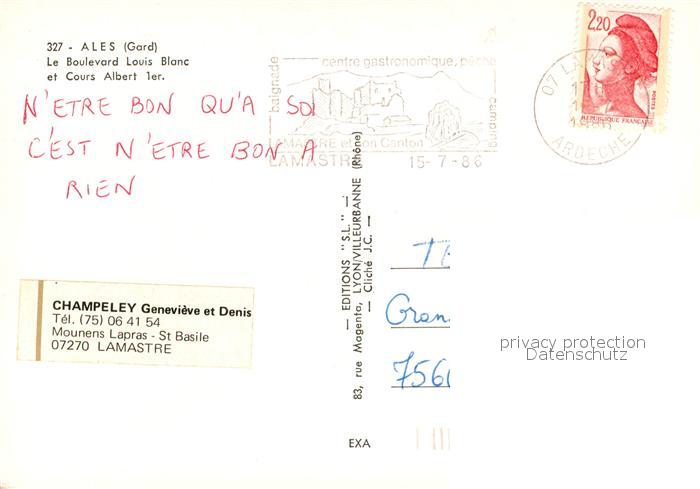 327 - ALES (Gard)
Le Boulevard Louis Blanc
et Cours Albert 1er.
N'ETRE BON QU'A SOI
C'EST N'ETRE BON A
RIEN
baignade
centre gastronomique, pêche
camping
LAMASTRE et son Canton
LAMASTRE
15-7-86
07 LAMASTRE
17
1986
ARDECHE
2,20
POSTES
REPUBLIQUE FRANCAISE
CHAMPELEY Geneviève et Denis
Tél. (75) 06 41 54
Mounens Lapras - St Basile
07270 LAMASTRE
— EDITIONS "S.L." —
83, rue Magenta, LYON/VILLEURBANNE (Rhône)
— Cliché J.C. —
EXA
Gran
756
privacy protection
Datenschutz